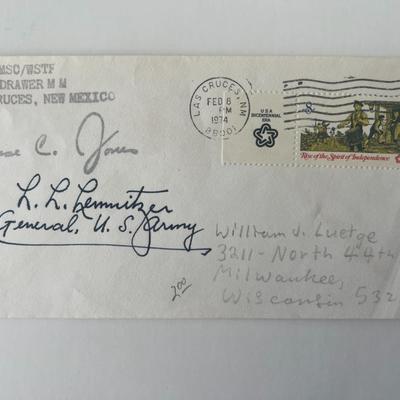 MSC/WSTF
DRAWER M M
RUCES, NEW MEXICO
LAS CRUCES, NM
FEB 6
PM
1974
88001
USA
BICENTENNIAL
ERA
8c
Rise of the Spirit of Independence
C. Jones
L. L. Lemnitzer
General, U. S. Army
William J. Luetge
3211-North 44th
Milwaukee,
Wisconsin 532
2.00